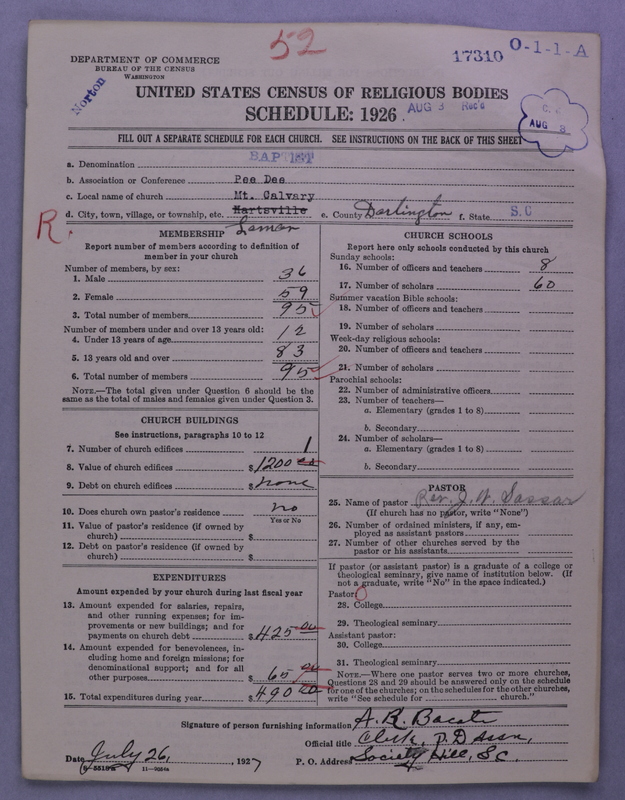 52
17310 O-1-1-A
DEPARTMENT OF COMMERCE
BUREAU OF THE CENSUS
WASHINGTON
Norton
UNITED STATES CENSUS OF RELIGIOUS BODIES
SCHEDULE: 1926
AUG 3 Rec'd
AUG 3
FILL OUT A SEPARATE SCHEDULE FOR EACH CHURCH. SEE INSTRUCTIONS ON THE BACK OF THIS SHEET
a. Denomination BAPTIST
b. Association or Conference Pee Dee
c. Local name of church Mt. Calvary
d. City, town, village, or township, etc. Hartsville e. County Darlington f. State S.C
R. Lamar
MEMBERSHIP
Report number of members according to definition of
member in your church
Number of members, by sex:
1. Male 36
2. Female 59
3. Total number of members 95
Number of members under and over 13 years old:
4. Under 13 years of age 12
5. 13 years old and over 83
6. Total number of members 95
NOTE.—The total given under Question 6 should be the
same as the total of males and females given under Question 3.
CHURCH BUILDINGS
See instructions, paragraphs 10 to 12
7. Number of church edifices 1
8. Value of church edifices $1200 00
9. Debt on church edifices $ none
10. Does church own pastor's residence no
Yes or No
11. Value of pastor's residence (if owned by
church) $
12. Debt on pastor's residence (if owned by
church) $
EXPENDITURES
Amount expended by your church during last fiscal year
13. Amount expended for salaries, repairs,
and other running expenses; for im-
provements or new buildings; and for
payments on church debt $425 00
14. Amount expended for benevolences, in-
cluding home and foreign missions; for
denominational support; and for all
other purposes $ 65 00
15. Total expenditures during year $490 00
CHURCH SCHOOLS
Report here only schools conducted by this church
Sunday schools:
16. Number of officers and teachers 8
17. Number of scholars 60
Summer vacation Bible schools:
18. Number of officers and teachers
19. Number of scholars
Week-day religious schools:
20. Number of officers and teachers
21. Number of scholars
Parochial schools:
22. Number of administrative officers
23. Number of teachers—
a. Elementary (grades 1 to 8)
b. Secondary
24. Number of scholars—
a. Elementary (grades 1 to 8)
b. Secondary
PASTOR
25. Name of pastor Rev. J. W. Sassar
(If church has no pastor, write "None")
26. Number of ordained ministers, if any, em-
ployed as assistant pastors
27. Number of other churches served by the
pastor or his assistants
If pastor (or assistant pastor) is a graduate of a college or
theological seminary, give name of institution below. (If
not a graduate, write "No" in the space indicated.)
Pastor: 0
28. College
29. Theological seminary
Assistant pastor:
30. College
31. Theological seminary
NOTE.—Where one pastor serves two or more churches,
Questions 28 and 29 should be answered only on the schedule
for one of the churches; on the schedules for the other churches,
write "See schedule for church."
Signature of person furnishing information A. R. Bacote
Official title Clerk, P. D Assn,
Date July 26, 1927 P. O. Address Society Hill, S.C.